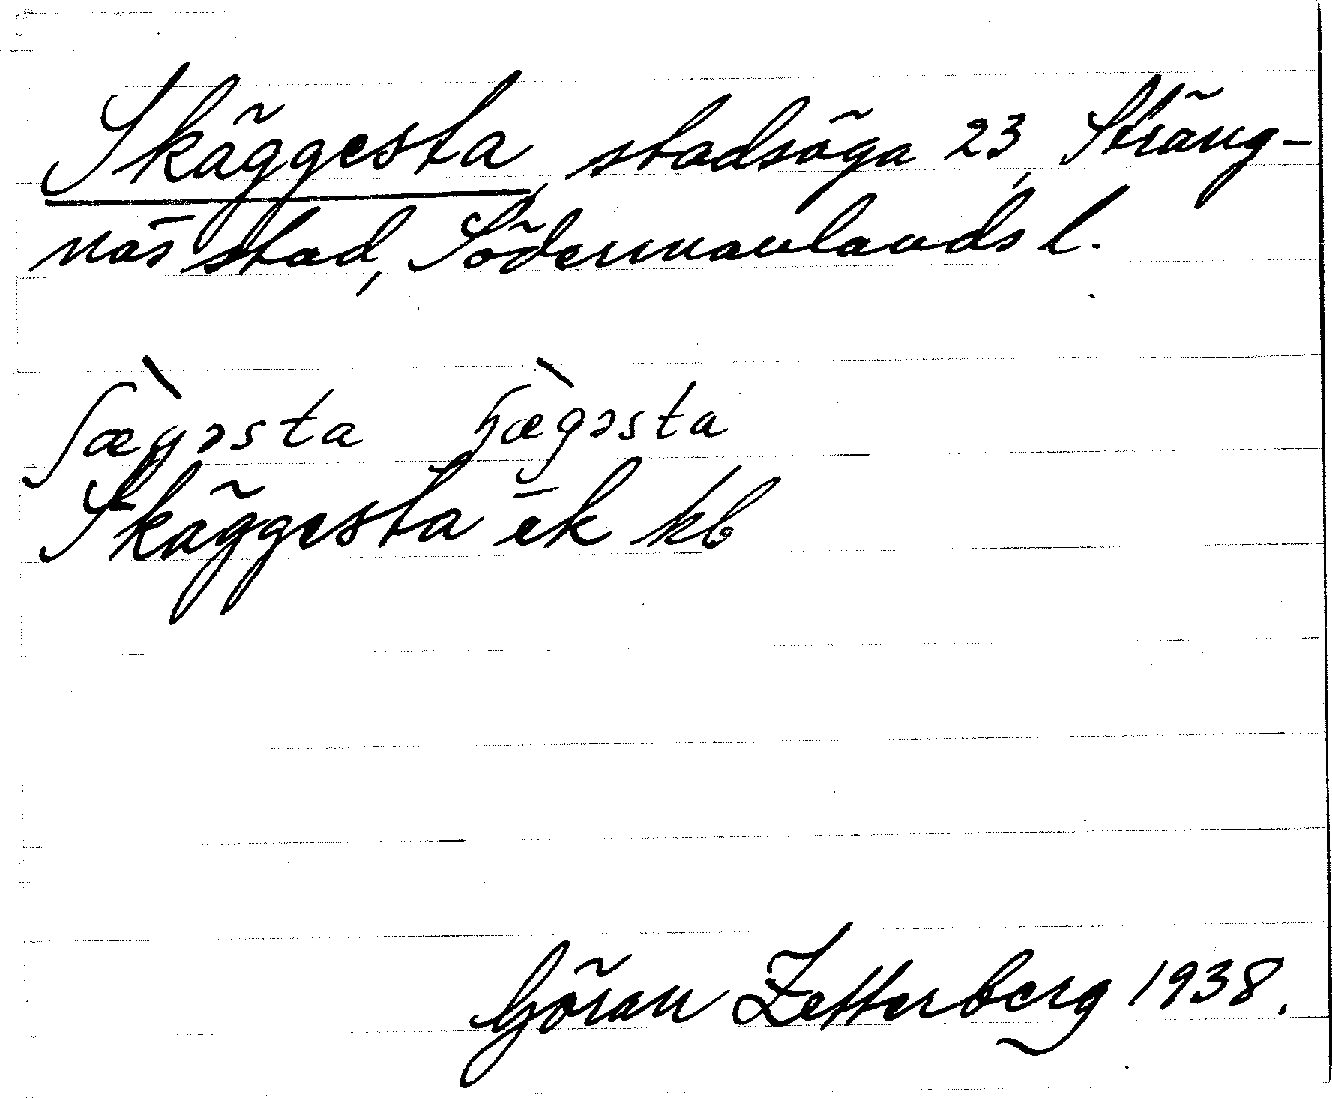 Skäggesta, stadsäga 23, Sträng-
näs stad, Södermanlands l.
ʃæ̀gəsta ɧæ̀gəsta
Skäggesta ek kb
Göran Zetterberg 1938.